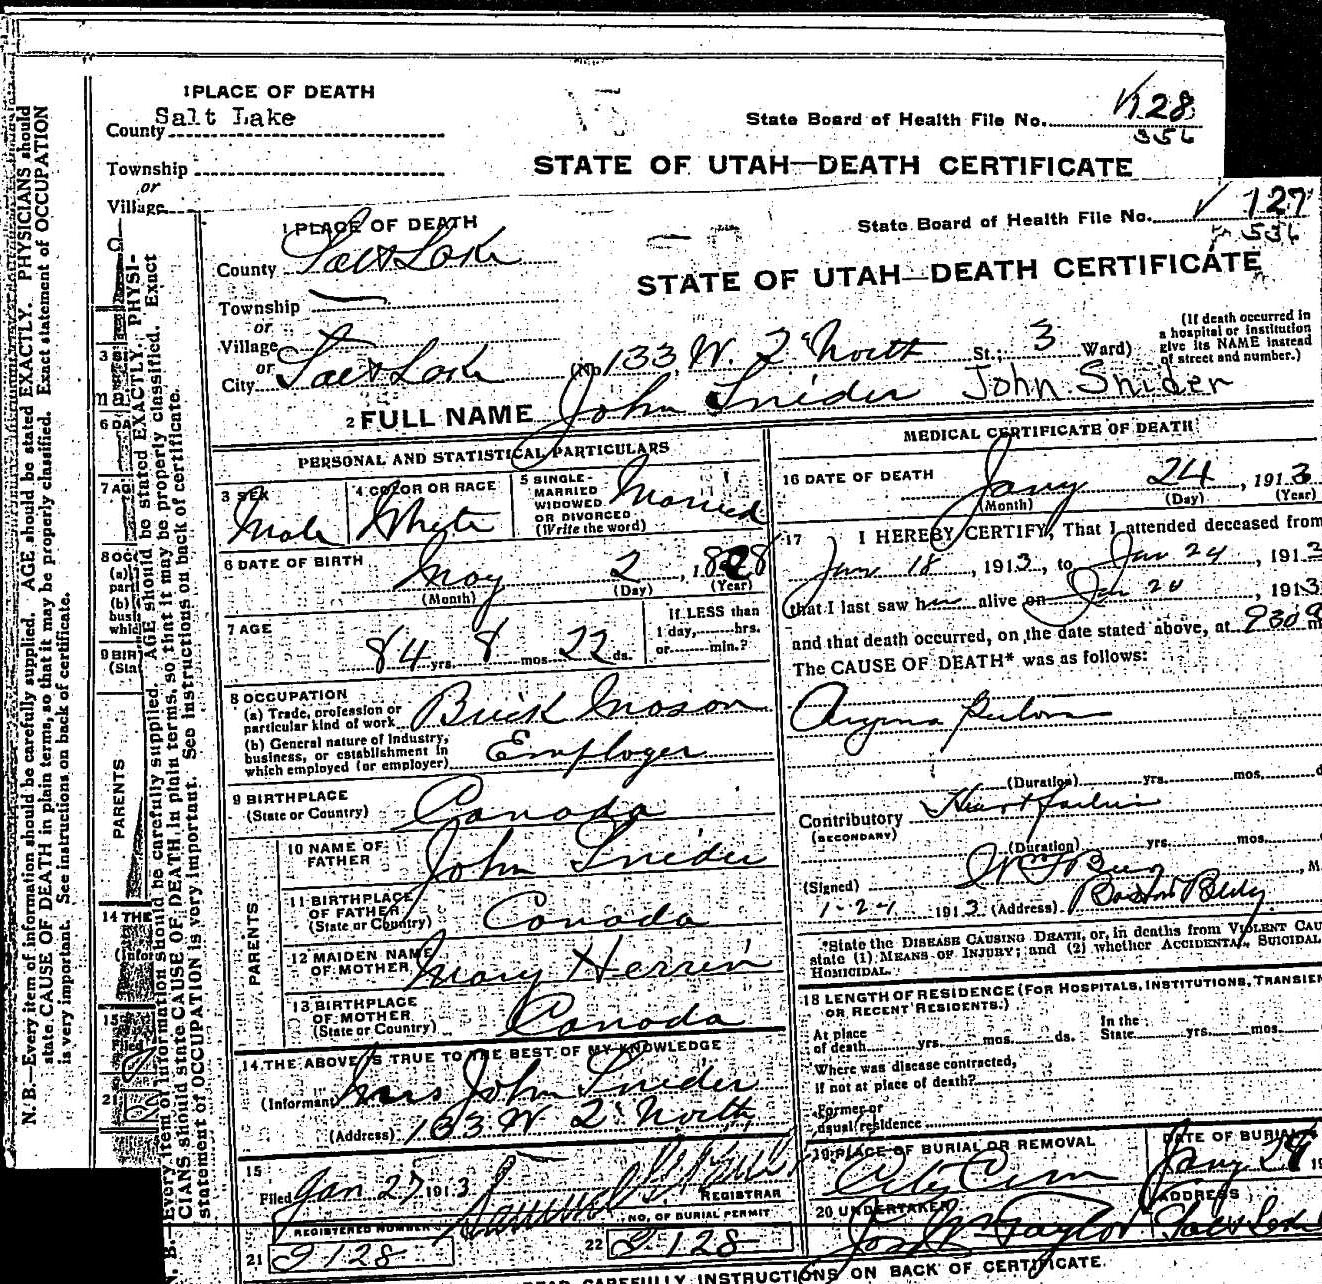 1 PLACE OF DEATH
County Salt Lake
Township
or
Village
State Board of Health File No. 128
356
STATE OF UTAH—DEATH CERTIFICATE
N. B.—Every item of information should be carefully supplied. AGE should be stated EXACTLY. PHYSICIANS should
state CAUSE OF DEATH in plain terms, so that it may be properly classified. Exact statement of OCCUPATION
is very important. See instructions on back of certificate.
6 DA
9 BIR
(Sta
PARENTS
14 THE
(Infor
15
Filed
21
N. B.—Every item of information should be carefully supplied. AGE should be stated EXACTLY. PHYSI-
CIANS should state CAUSE OF DEATH in plain terms, so that it may be properly classified. Exact
statement of OCCUPATION is very important. See instructions on back of certificate.
1 PLACE OF DEATH
County Salt Lake
Township
or
Village
or
City Salt Lake
State Board of Health File No. 127
536
STATE OF UTAH—DEATH CERTIFICATE
(No. 133 W. 2nd North St.; 3 Ward)
(If death occurred in
a hospital or institution
give its NAME instead
of street and number.)
2 FULL NAME John Snider John Snider
PERSONAL AND STATISTICAL PARTICULARS
3 SEX
Male
4 COLOR OR RACE
White
5 SINGLE-
MARRIED
WIDOWED
OR DIVORCED
(Write the word)
Married
6 DATE OF BIRTH
May 2, 1828
(Month) (Day) (Year)
7 AGE
84 yrs. 8 mos. 22 ds.
If LESS than
1 day, hrs.
or min.?
8 OCCUPATION
(a) Trade, profession or
particular kind of work Brick Mason
(b) General nature of industry,
business, or establishment in
which employed (or employer) Employer
9 BIRTHPLACE
(State or Country) Canada
PARENTS
10 NAME OF
FATHER John Snider
11 BIRTHPLACE
OF FATHER
(State or Country) Canada
12 MAIDEN NAME
OF MOTHER Mary Herren
13 BIRTHPLACE
OF MOTHER
(State or Country) Canada
14 THE ABOVE IS TRUE TO THE BEST OF MY KNOWLEDGE
(Informant) Mrs John Snider
(Address) 133 W 2" North
15
Filed Jan 27 1913
REGISTRAR
REGISTERED NUMBER
21 D 128
NO. OF BURIAL PERMIT
22 D 128
MEDICAL CERTIFICATE OF DEATH
16 DATE OF DEATH
Jany 24, 1913
(Month) (Day) (Year)
17 I HEREBY CERTIFY, That I attended deceased from
Jan 18, 1913, to Jan 24, 1913
that I last saw him alive on Jan 20, 1913
and that death occurred, on the date stated above, at 930 a m
The CAUSE OF DEATH* was as follows:
Angina
(Duration) yrs. mos. d
Contributory Heart failure
(SECONDARY)
(Duration) yrs. mos.
(Signed) , M.
1-24 1913 (Address) Boston Bldg.
*State the DISEASE CAUSING DEATH, or, in deaths from VIOLENT CAU
state (1) MEANS OF INJURY; and (2) whether ACCIDENTAL, SUICIDAL
HOMICIDAL.
18 LENGTH OF RESIDENCE (FOR HOSPITALS, INSTITUTIONS, TRANSIEN
OR RECENT RESIDENTS.)
At place
of death yrs. mos. ds.
In the
State yrs. mos.
Where was disease contracted,
if not at place of death?
Former or
usual residence
19 PLACE OF BURIAL OR REMOVAL
City Cem
DATE OF BURIAL
Jany 28 19
20 UNDERTAKER
Jos Wm Taylor
ADDRESS
Salt Lake
READ CAREFULLY INSTRUCTIONS ON BACK OF CERTIFICATE.